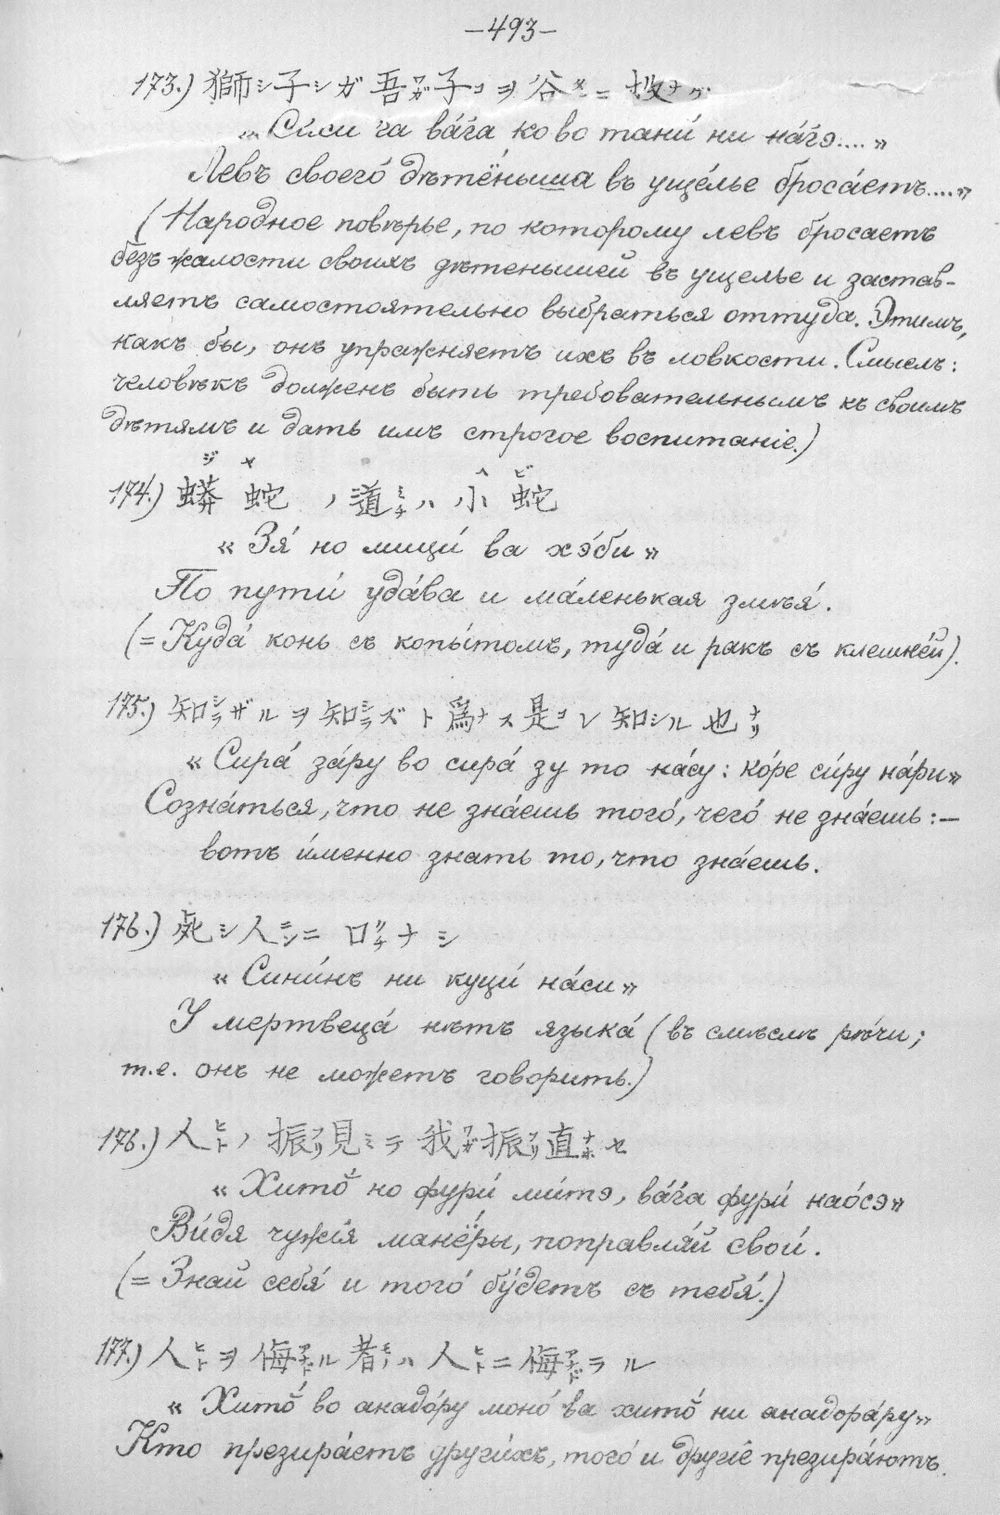 —493—
173.) 獅シ子シガ吾ワガ子コヲ谷タニニ投ナゲ
„Си́си га ва́га ко во тани́ ни на́гэ....»
Левъ своего́ дѣтёныша въ уще́лье броса́етъ....»
(Народное повѣрье, по которому левъ бросаетъ
безъ жалости своихъ дѣтенышей въ ущелье и застав-
ляетъ самостоятельно выбраться оттуда. Этимъ,
какъ бы, онъ упражняетъ ихъ въ ловкости. Смыслъ:
человѣкъ долженъ быть требовательнымъ къ своимъ
дѣтямъ и дать имъ строгое воспитаніе.)
174.) 蟒ジ蛇ヤノ道ミチハ小ヘ蛇ビ
« Зя́ но мици́ ва хэ́би »
По пути́ уда́ва и ма́ленькая змѣя́.
(= Куда́ конь съ копы́томъ, туда́ и ракъ съ клешне́й).
175.) 知シラザルヲ知シラズト爲ナス是コレ知シル也ナリ
« Сира́ за́ру во сира́ зу то на́су: ко́ре си́ру на́ри»
Созна́ться, что не зна́ешь того́, чего́ не зна́ешь: —
вотъ и́менно знать то, что зна́ешь.
176.) 死シ人ニンニ口クチナシ
« Сини́нъ ни куци́ на́си »
У мертвеца́ нѣтъ языка́ (въ смыслѣ рѣ́чи;
т.е. онъ не можетъ говорить.)
176.) 人ヒトノ振フリ見ミテ我ワガ振フリ直ナホセ
« Хито̆́ но фури́ ми́тэ, ва́га фури́ нао́сэ»
Ви́дя чужі́я манёры, поправля́й свои́.
(= Знай себя́ и того́ бу́детъ съ тебя́.)
177.) 人ヒトヲ侮アナドル者モノハ人ヒトニ侮アナドラル
« Хито̆́ во анадо́ру моно́ ва хито̆́ ни анадора́ру»
Кто презира́етъ други́хъ, того́ и другі́е презира́ютъ.